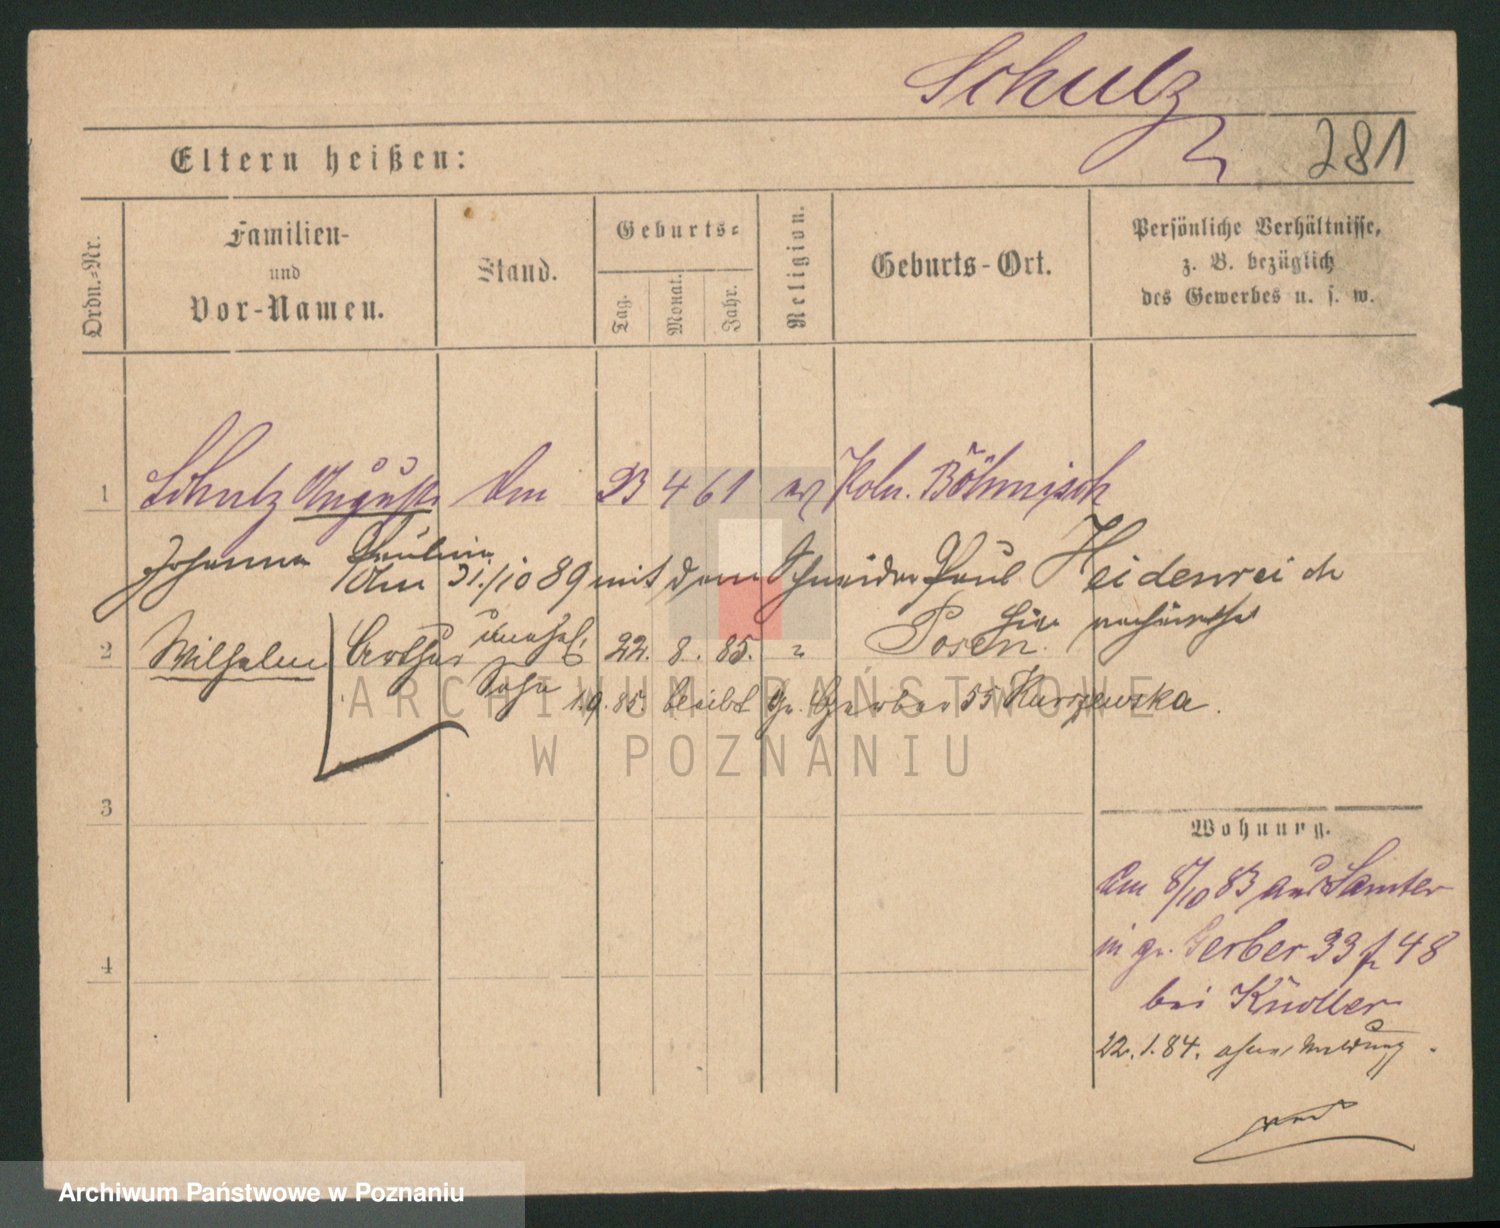 Schulz
281
Eltern heißen:
Ordn.=Nr.
Familien-
und
Vor-Namen.
Stand.
Geburts=
Tag.
Monat.
Jahr.
Religion.
Geburts-Ort.
Persönliche Verhältnisse,
z. B. bezüglich
des Gewerbes u. s. w.
1 Schulz Auguste 23 4 61 ev Poln. Böhmisch
Johanna Pauline
31./10 89 mit dem Schneider Paul Heidenreich
hier verheirathet
2 Wilhelm Arthur unehel. 22. 8. 85. " Posen.
Sohn 1.9.85. bleibt gr. Gerber 55 Kurzewska.
3
4
Wohnung.
Am 8/10 83 aus Samter
in gr. Gerber 33 48
bei Knoller
22. 1. 84. ohne Meldung.
ARCHIWUM PAŃSTWOWE
W POZNANIU
Archiwum Państwowe w Poznaniu